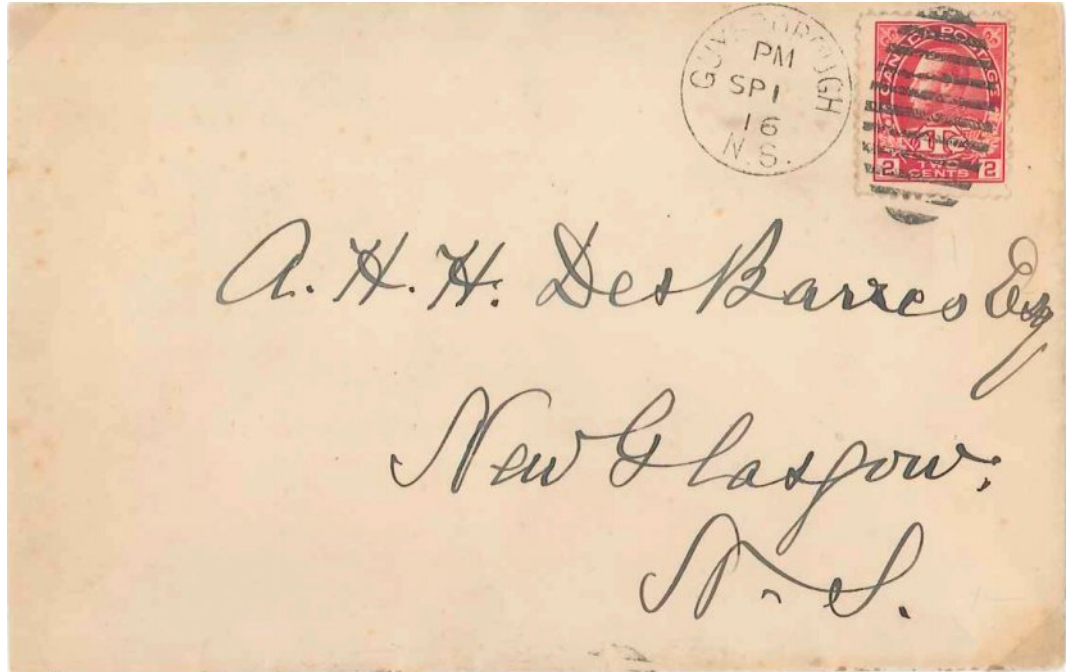 GUYSBOROUGH
PM
SP 1
16
N.S.
CANADA POSTAGE
2 TWO CENTS 2
A. H. H. DesBarres Esq
New Glasgow.
N. S.